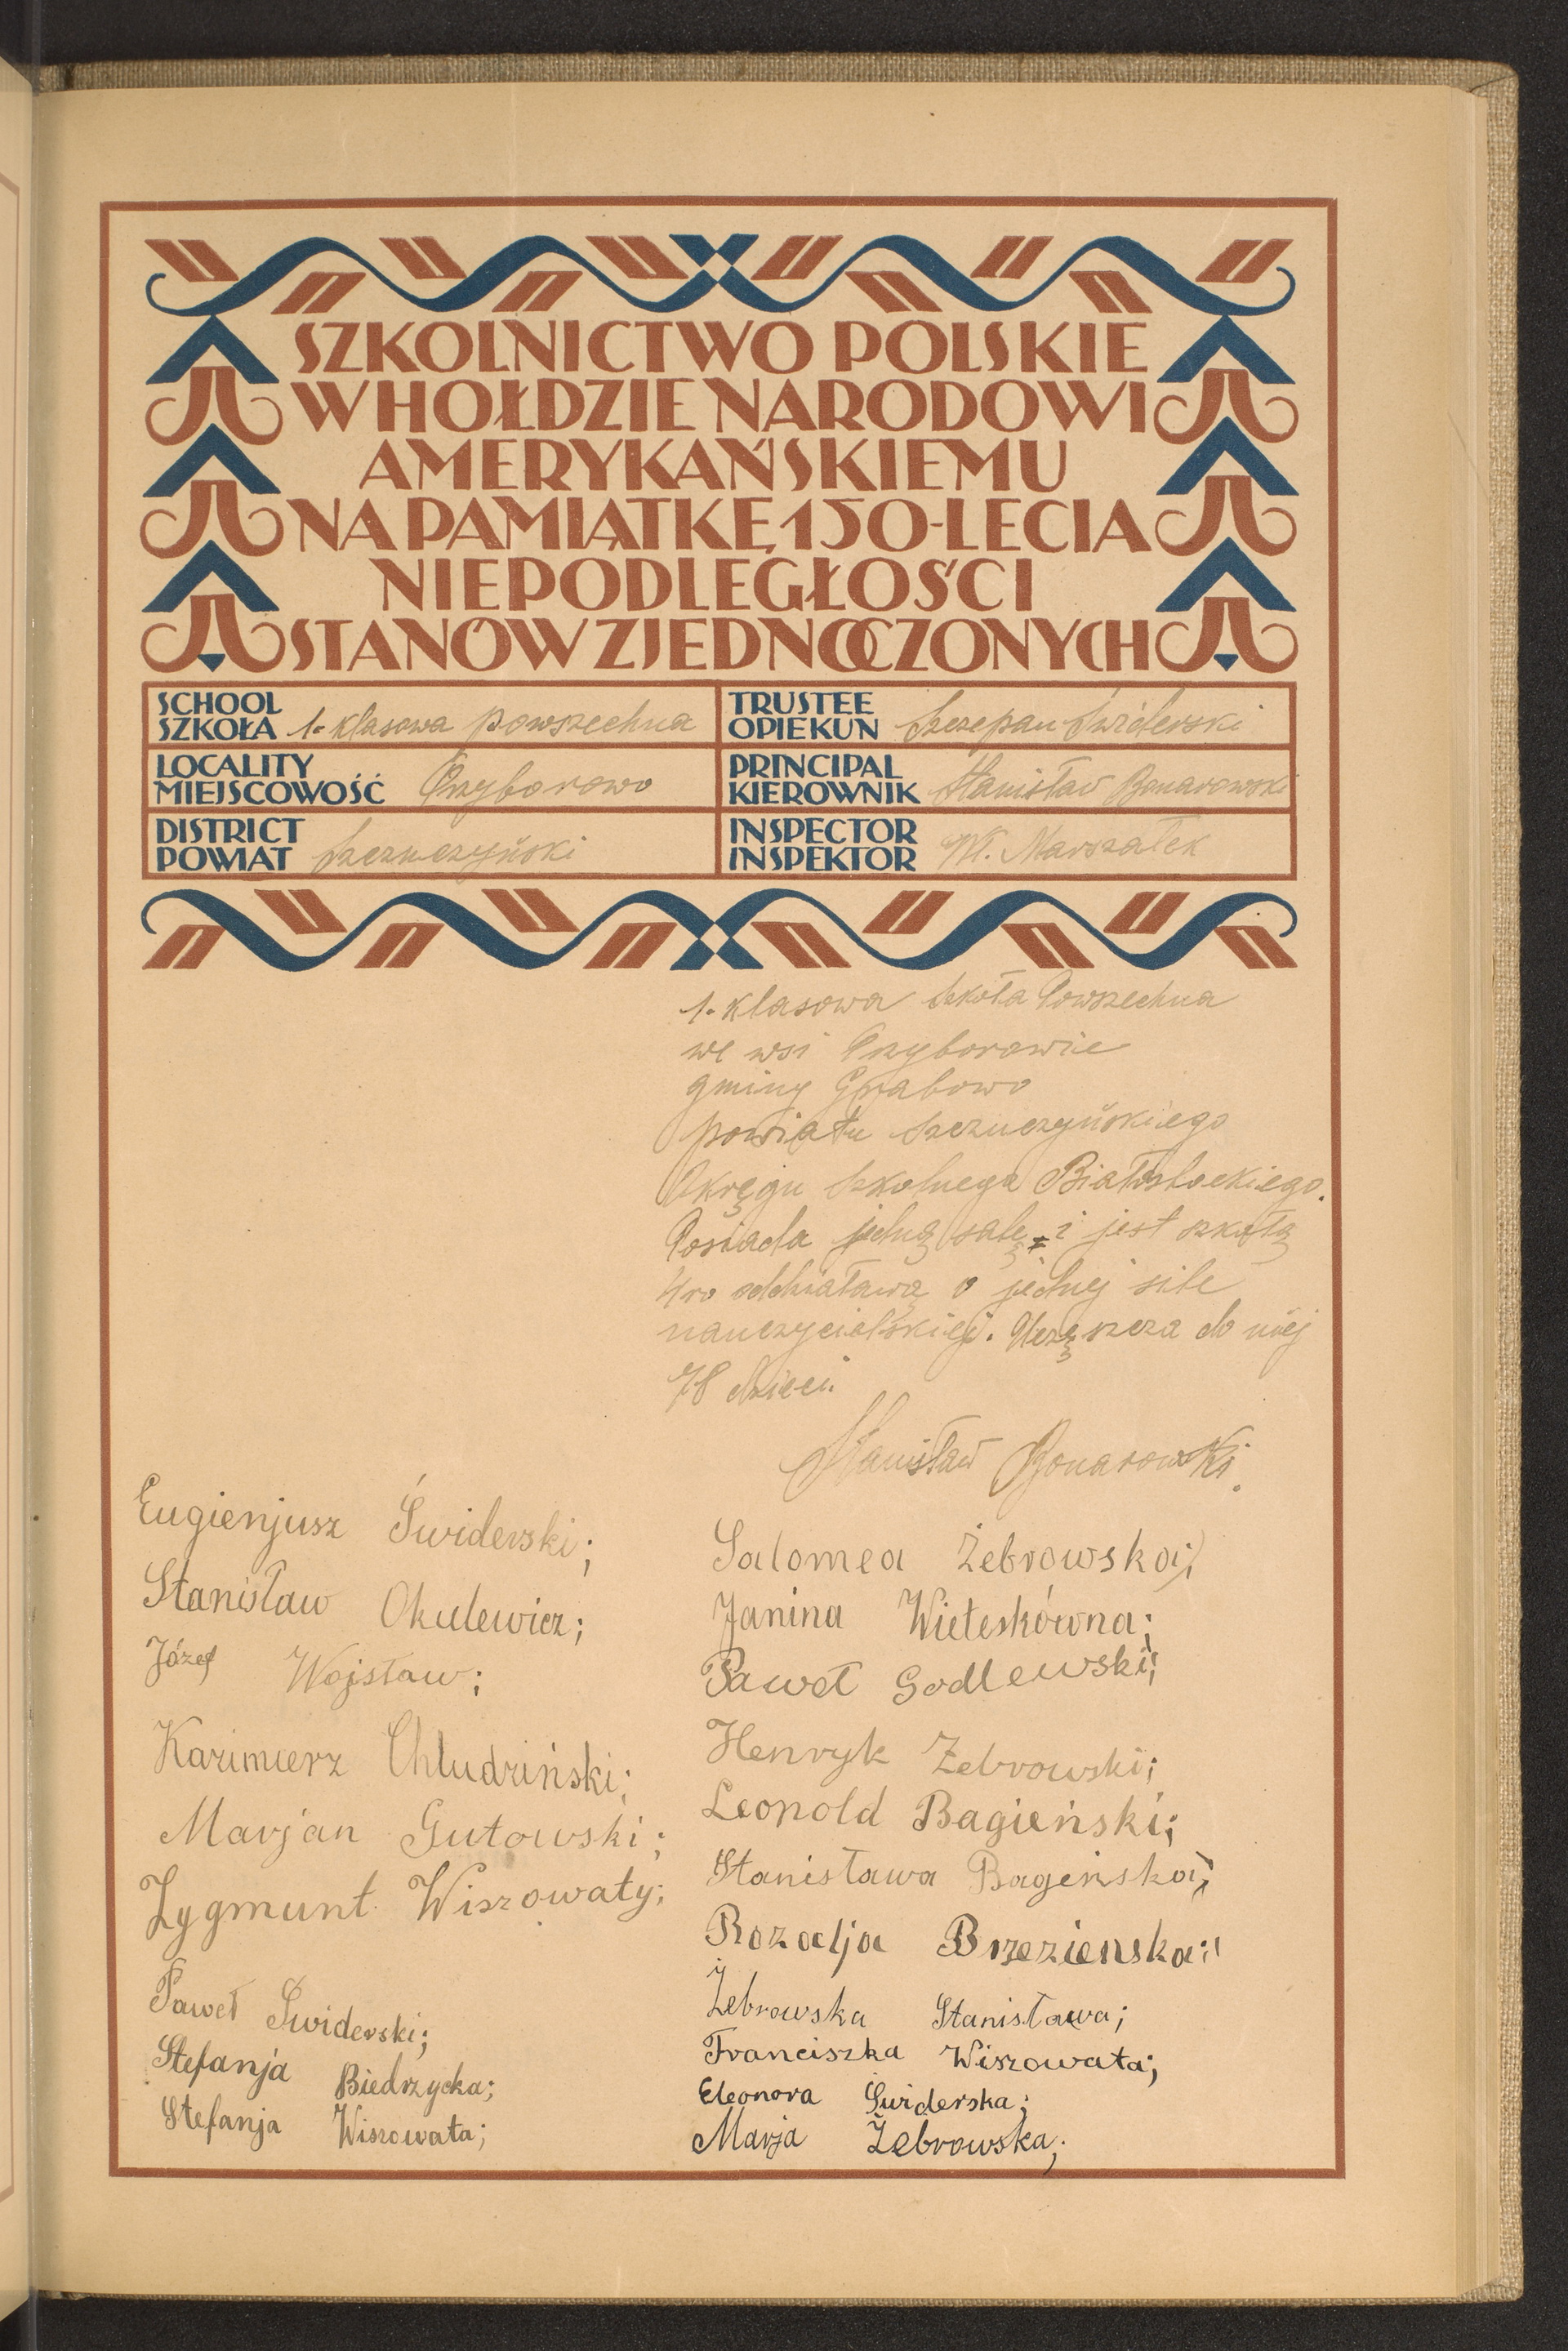 SZKOLNICTWO POLSKIE
W HOŁDZIE NARODOWI
AMERYKAŃSKIEMU
NA PAMIĄTKĘ 150-LECIA
NIEPODLEGŁOŚCI
STANÓW ZJEDNOCZONYCH
SCHOOL
SZKOŁA 1-klasowa powszechna
TRUSTEE
OPIEKUN Szczepan Świderski
LOCALITY
MIEJSCOWOŚĆ Przyborowo
PRINCIPAL
KIEROWNIK Stanisław Bonarowski
DISTRICT
POWIAT Szczuczyński
INSPECTOR
INSPEKTOR Wł. Marszałek
1-klasowa Szkoła Powszechna
we wsi Przyborowie
gminy Grabowo
powiatu Szczuczyńskiego
Okręgu Szkolnego Białostockiego.
Posiada jedną salę i jest szkołą
4ro oddziałową o jednej sile
nauczycielskiej. Uczęszcza do niej
78 dzieci.
Stanisław Bonarowski.
Eugienjusz Świderski;
Stanisław Okulewicz;
Józef Wojsław;
Kazimierz Chludziński;
Marjan Gutowski;
Zygmunt Wiszowaty;
Paweł Świderski;
Stefanja Biedrzycka;
Stefanja Wiszowata;
Salomea Żebrowska;
Janina Wieteskówna;
Paweł Godlewski;
Henryk Żebrowski;
Leopold Bagieński;
Stanisława Bagieńska;
Rozalja Brzezienska;
Żebrowska Stanisława;
Franciszka Wiszowata;
Eleonora Świderska;
Marja Żebrowska;